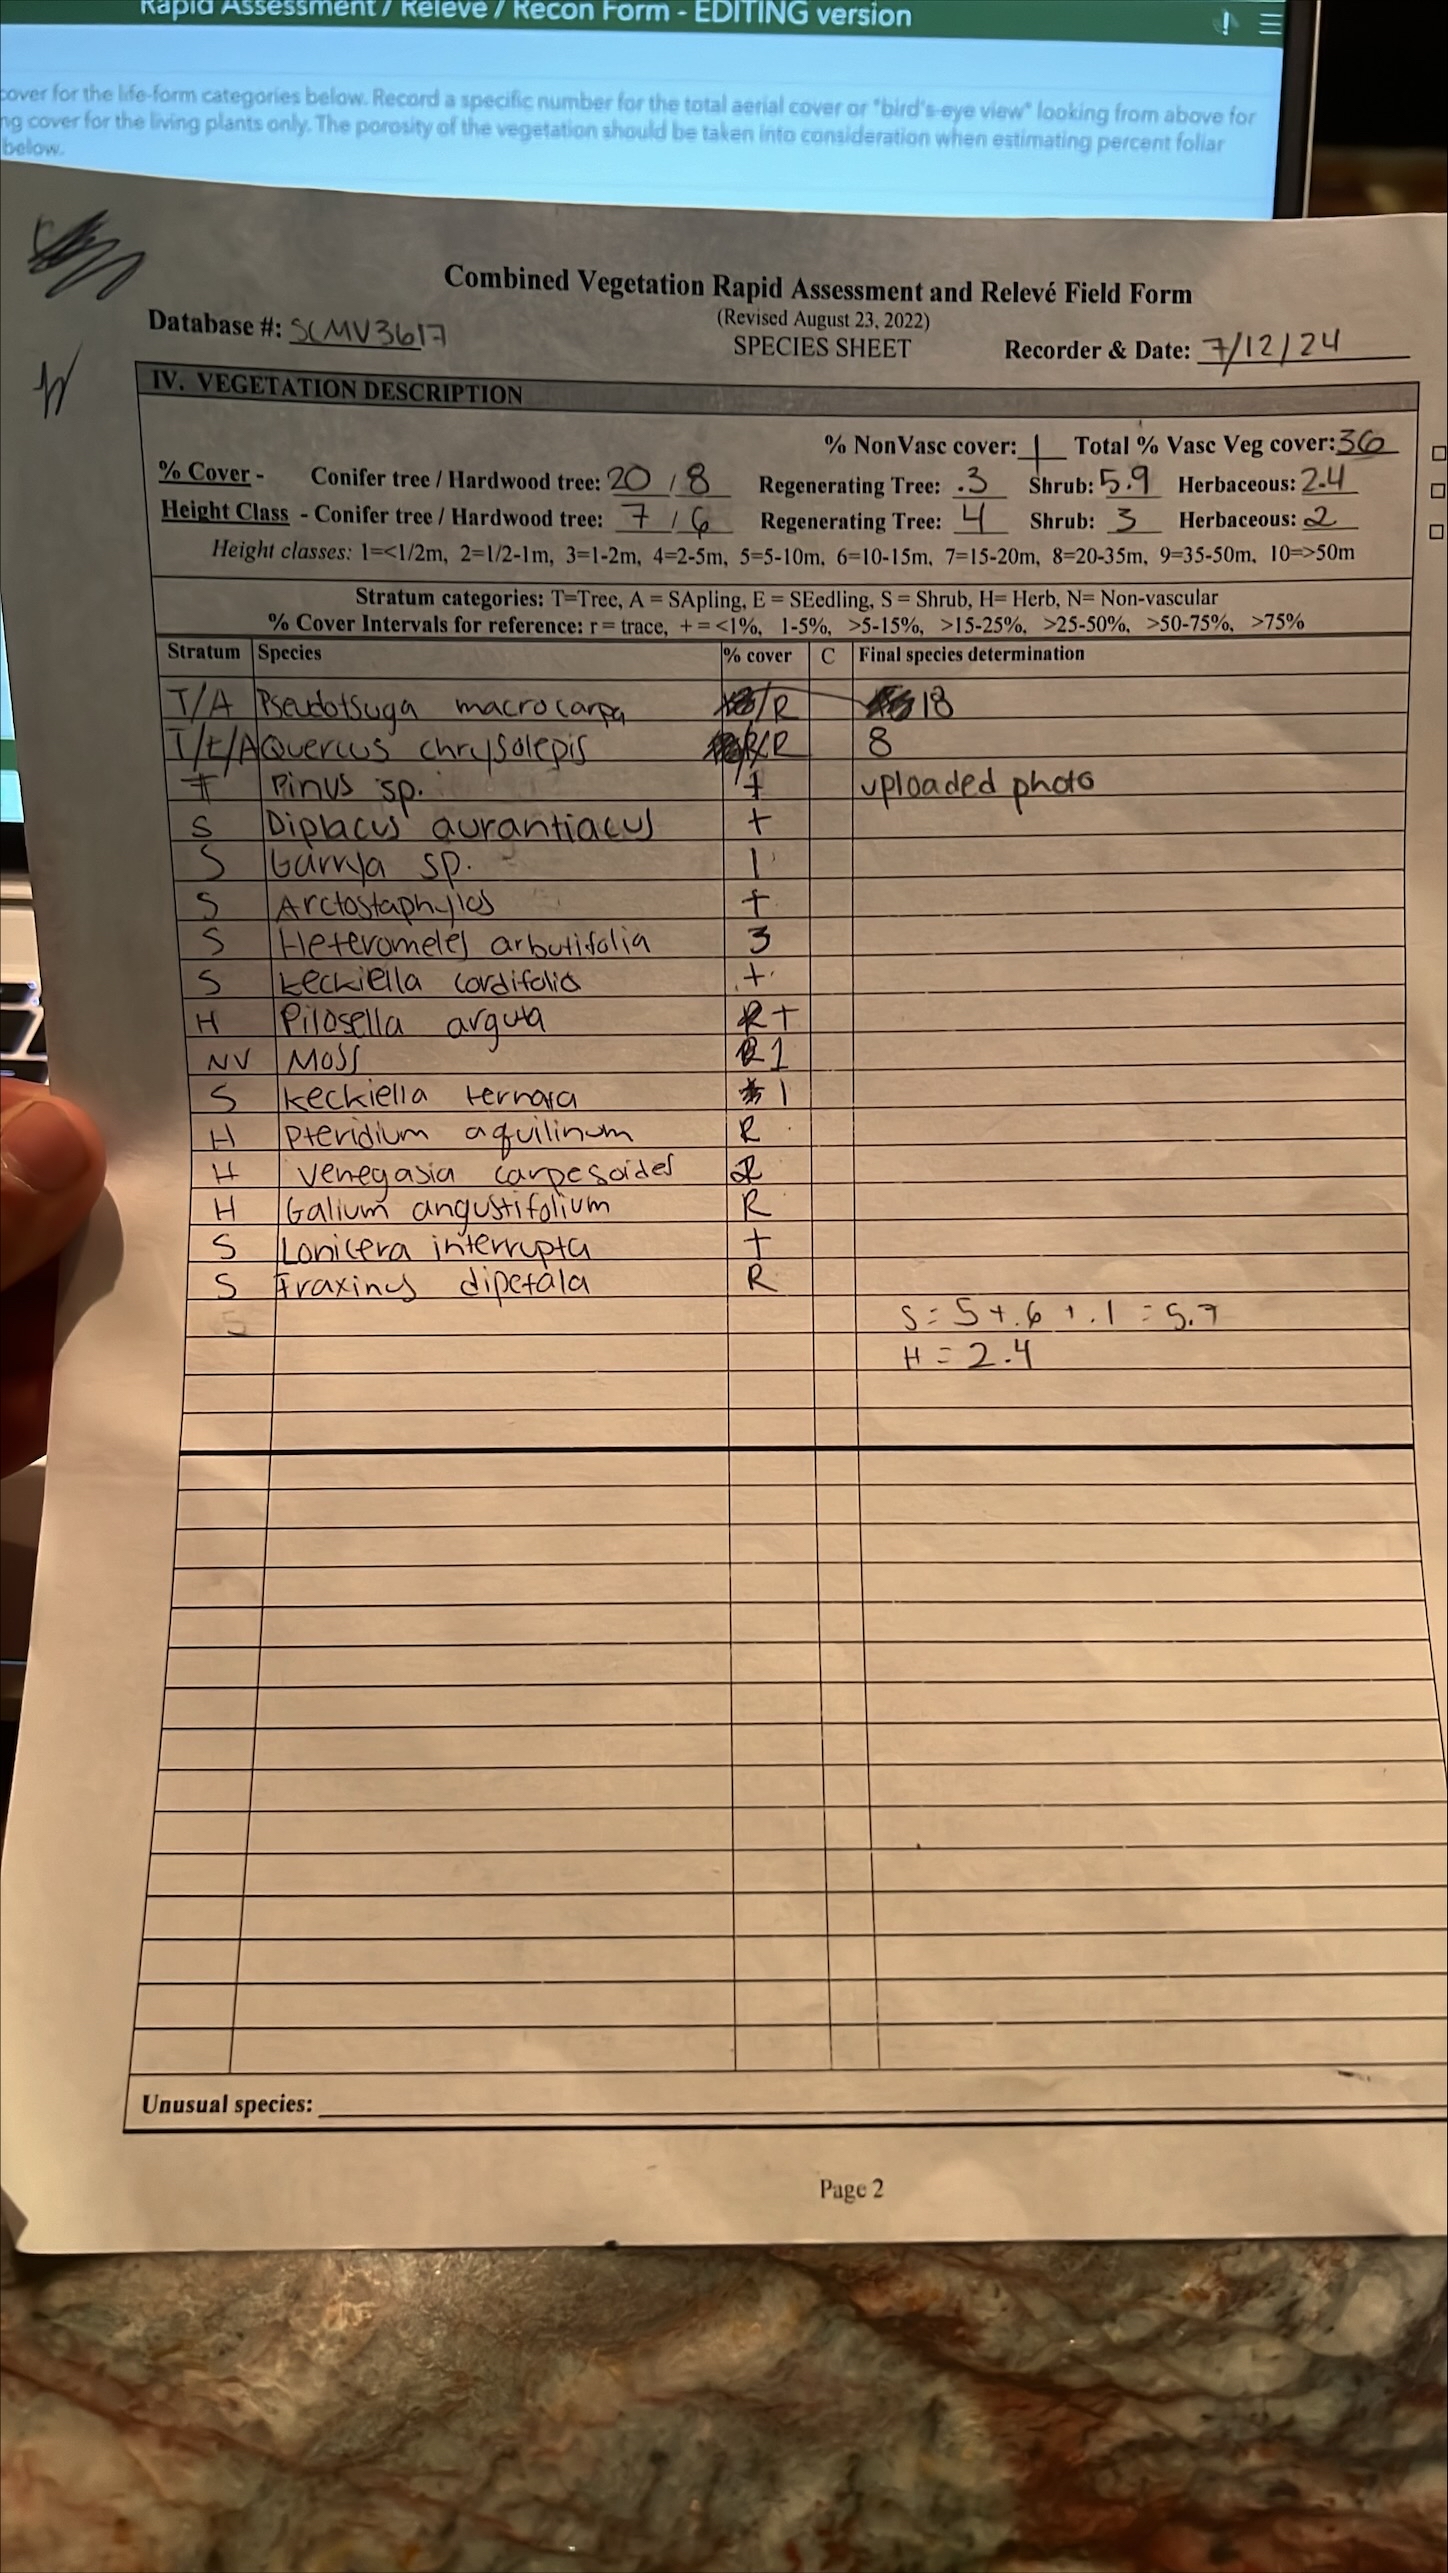 Rapid Assessment / Relevé / Recon Form - EDITING version
cover for the life-form categories below. Record a specific number for the total aerial cover or "bird's-eye view" looking from above for
ng cover for the living plants only. The porosity of the vegetation should be taken into consideration when estimating percent foliar
below.
Combined Vegetation Rapid Assessment and Relevé Field Form
(Revised August 23, 2022)
Database #: SCMV3617
SPECIES SHEET
Recorder & Date: 7/12/24
IV. VEGETATION DESCRIPTION
% NonVasc cover: 1 Total % Vasc Veg cover: 36
% Cover - Conifer tree / Hardwood tree: 20 / 8 Regenerating Tree: .3 Shrub: 5.9 Herbaceous: 2.4
Height Class - Conifer tree / Hardwood tree: 7 / 6 Regenerating Tree: 4 Shrub: 3 Herbaceous: 2
Height classes: 1=<1/2m, 2=1/2-1m, 3=1-2m, 4=2-5m, 5=5-10m, 6=10-15m, 7=15-20m, 8=20-35m, 9=35-50m, 10=>50m
Stratum categories: T=Tree, A = SApling, E = SEedling, S = Shrub, H= Herb, N= Non-vascular
% Cover Intervals for reference: r = trace, + = <1%, 1-5%, >5-15%, >15-25%, >25-50%, >50-75%, >75%
Stratum Species % cover C Final species determination
T/A Pseudotsuga macrocarpa /R 18
T/E/A Quercus chrysolepis R/R 8
T Pinus sp. + uploaded photo
S Diplacus aurantiacus +
S Garrya sp. 1
S Arctostaphylos +
S Heteromeles arbutifolia 3
S keckiella cordifolia +
H Pilosella arguta +
NV Moss 1
S keckiella ternata 1
H Pteridium aquilinum R
H Venegasia carpesoides 2
H Galium angustifolium R
S Lonicera interrupta +
S Fraxinus dipetala R
S
S = 5 + .6 + .1 = 5.7
H = 2.4
Unusual species:
Page 2